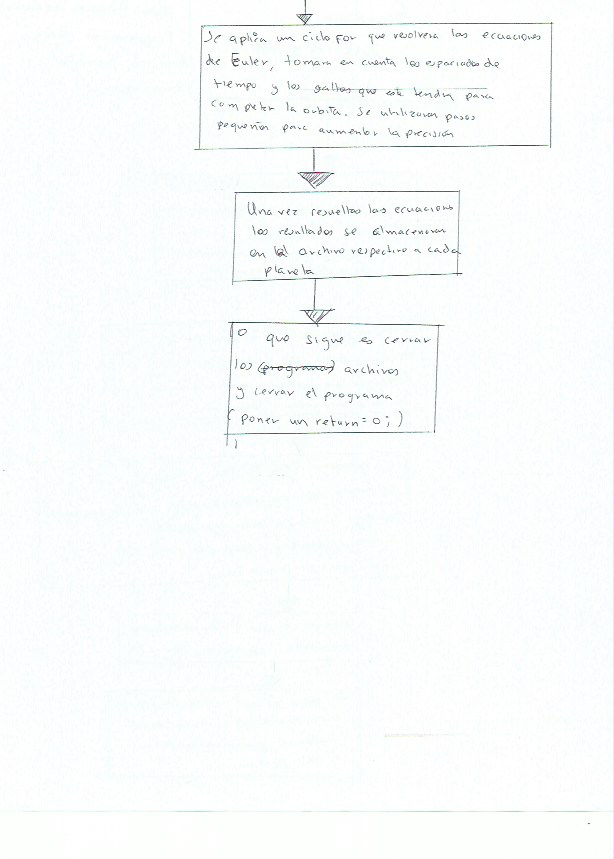 Se aplica un ciclo for que resolvera las ecuaciones
de Euler, tomara en cuenta los espaciados de
tiempo y los saltos que este tendra para
completar la orbita. Se utilizaran pasos
pequeños para aumentar la precisión
Una vez resueltas las ecuaciones
los resultados se almacenaran
en el archivo respectivo a cada
planeta
lo que sigue es cerrar
los (programas) archivos
y cerrar el programa
(poner un return=0;)